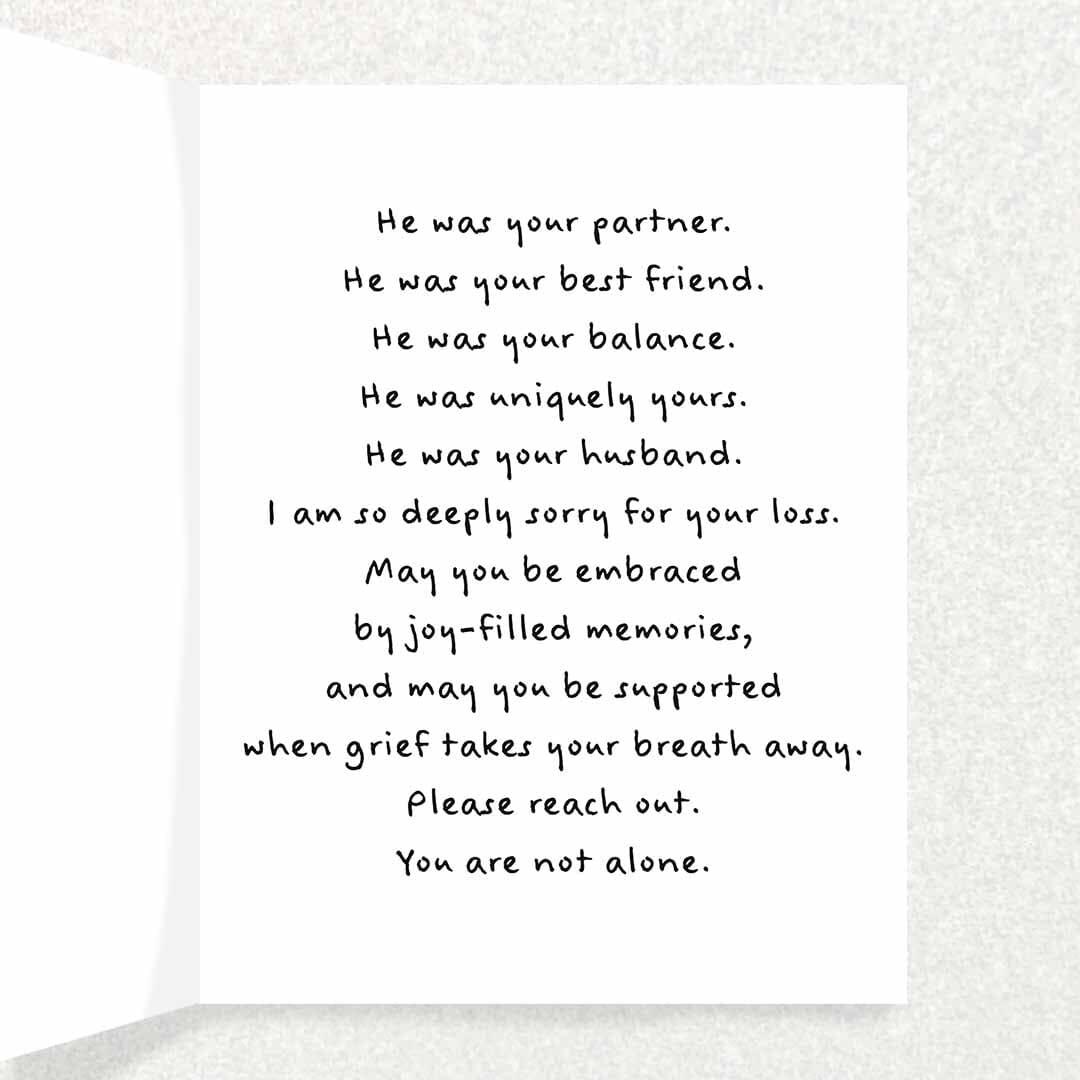 He was your partner.
He was your best friend.
He was your balance.
He was uniquely yours.
He was your husband.
I am so deeply sorry for your loss.
May you be embraced
by joy-filled memories,
and may you be supported
when grief takes your breath away.
Please reach out.
You are not alone.